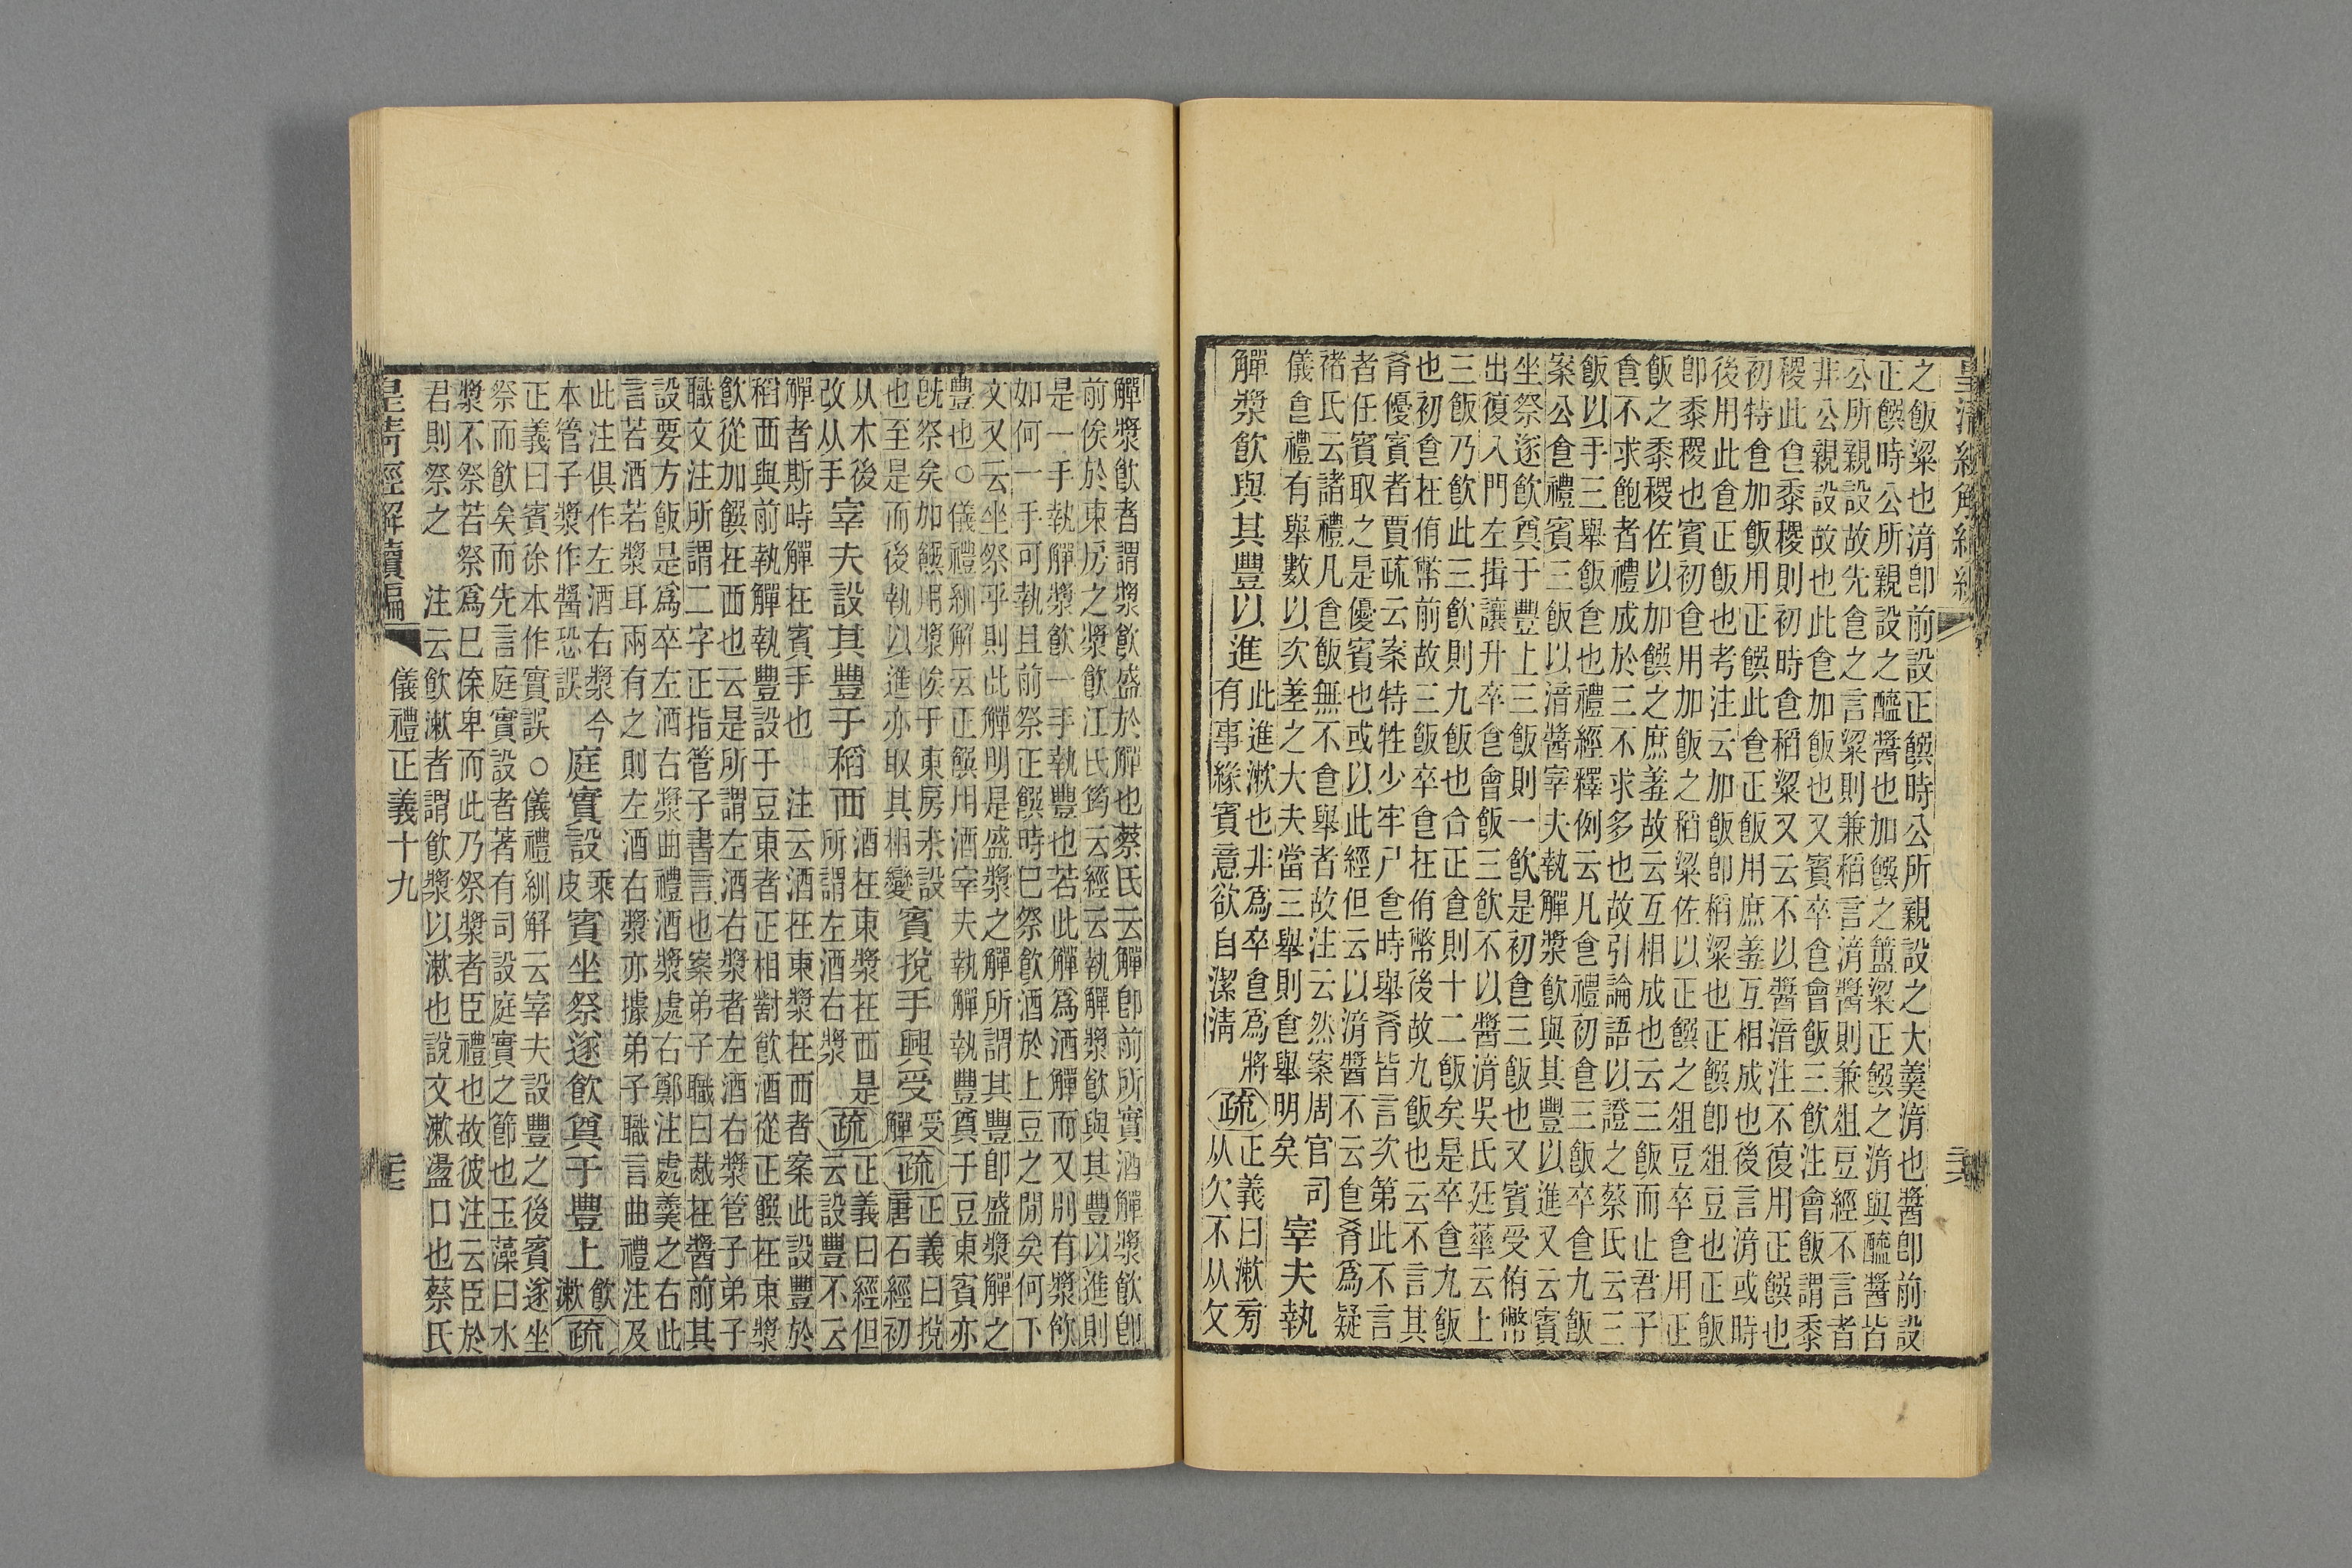 之飯粱也湇卽前設正饌時公所親設之大羹湇也醬卽前設
正饌時公所親設之醯醬也加饌之簠粱正饌之湇與醯醬皆
公所親設故先㑹之言粱則兼稻言湇醬則兼俎豆經不言者
非公親設故也此食加飯也又賓卒食會飯三飲注會飯謂黍
稷此食黍稷則初時食稻粱又云不以醬湇注不復用正饌也
初特食加飯用正饌此食正飯用庶羞互相成也後言湇或時
後用此食正飯也考注云加飯卽稻粱也正饌卽俎豆也正飯
卽黍稷也賓初食用加飯之稻粱佐以正饌之俎豆卒食用正
飯之黍稷佐以加饌之庶羞故云互相成也云三飯而止君子
食不求飽者禮成於三不求多也故引論語以證之蔡氏云三
飯以手三舉飯食也禮經釋例云凡食禮初食三飯卒食九飯
案公食禮賓三飯以湇醬宰夫執觶漿飲與其豐以進又云賓
坐祭遂飲奠于豐上三飯則一飲是初食三飯也又賓受侑幣
出復入門左揖讓升卒食會飯三飲不以醬湇吳氏廷華云上
三飯乃飲此三飲則九飯也合正食則十二飯矣是卒食九飯
也初食在侑幣前故三飯卒食在侑幣後故九飯也云不言其
肴優賓者賈疏云案特牲少牢尸食時舉肴皆言次第此不言
者任賓取之是優賓也或以此經但云以湇醬不云食肴爲疑
褚氏云諸禮凡食飯無不食舉者故注云然案周官司
儀食禮有舉數以次差之大夫當三舉則食舉明矣
宰夫執
觶漿飲與其豐以進
此進漱也非爲卒食爲將
有事緣賓意欲自潔清
疏
正義曰漱㫄
从欠不从攵
皇清經解續編
觶漿飲者謂漿飲盛於觶也蔡氏云觶卽前所實酒觶漿飲卽
前俟於東房之漿飲江氏筠云經云執觶漿飲與其豐以進則
是一手執觶漿飲一手執豐也若此觶爲酒觶而又別有漿飲
如何一手可執且前祭正饌時已祭飲酒於上豆之閒矣何下
文又云坐祭乎則此觶明是盛漿之觶所謂其豐卽盛漿觶之
豐也○儀禮紃解云正饌用酒宰夫執觶執豐奠于豆東賓亦
旣祭矣加饌用漿俟于東房未設
也至是而後執以進亦取其相變
賓挩手興受
受
觶
疏
正義曰挩
唐石經初
从木後
改从手
宰夫設其豐于稻西
酒在東漿在西是
所謂左酒右漿
疏
正義曰經但
云設豐不云
觶者斯時觶在賓手也注云酒在東漿在西者案此設豐於
稻西與前執觶執豐設于豆東者正相對飲酒從正饌在東漿
飲從加饌在西也云是所謂左酒右漿者左酒右漿管子弟子
職文注所謂二字正指管子書言也案弟子職曰胾在醬前其
設要方飯是爲卒左酒右漿曲禮酒漿處右鄭注處羹之右此
言若酒若漿耳兩有之則左酒右漿亦據弟子職言曲禮注及
此注俱作左酒右漿今
本管子漿作醬恐誤
庭實設
乘
皮
賓坐祭遂飲奠于豐上
飲
漱
疏
正義曰賓徐本作實誤○儀禮紃解云宰夫設豐之後賓遂坐
祭而飲矣而先言庭實設者著有司設庭實之節也玉藻曰水
漿不祭若祭爲已傺卑而此乃祭漿者臣禮也故彼注云臣於
君則祭之注云飲漱者謂飲漿以漱也說文漱盪口也蔡氏
皇清經解續編
儀禮正義十九